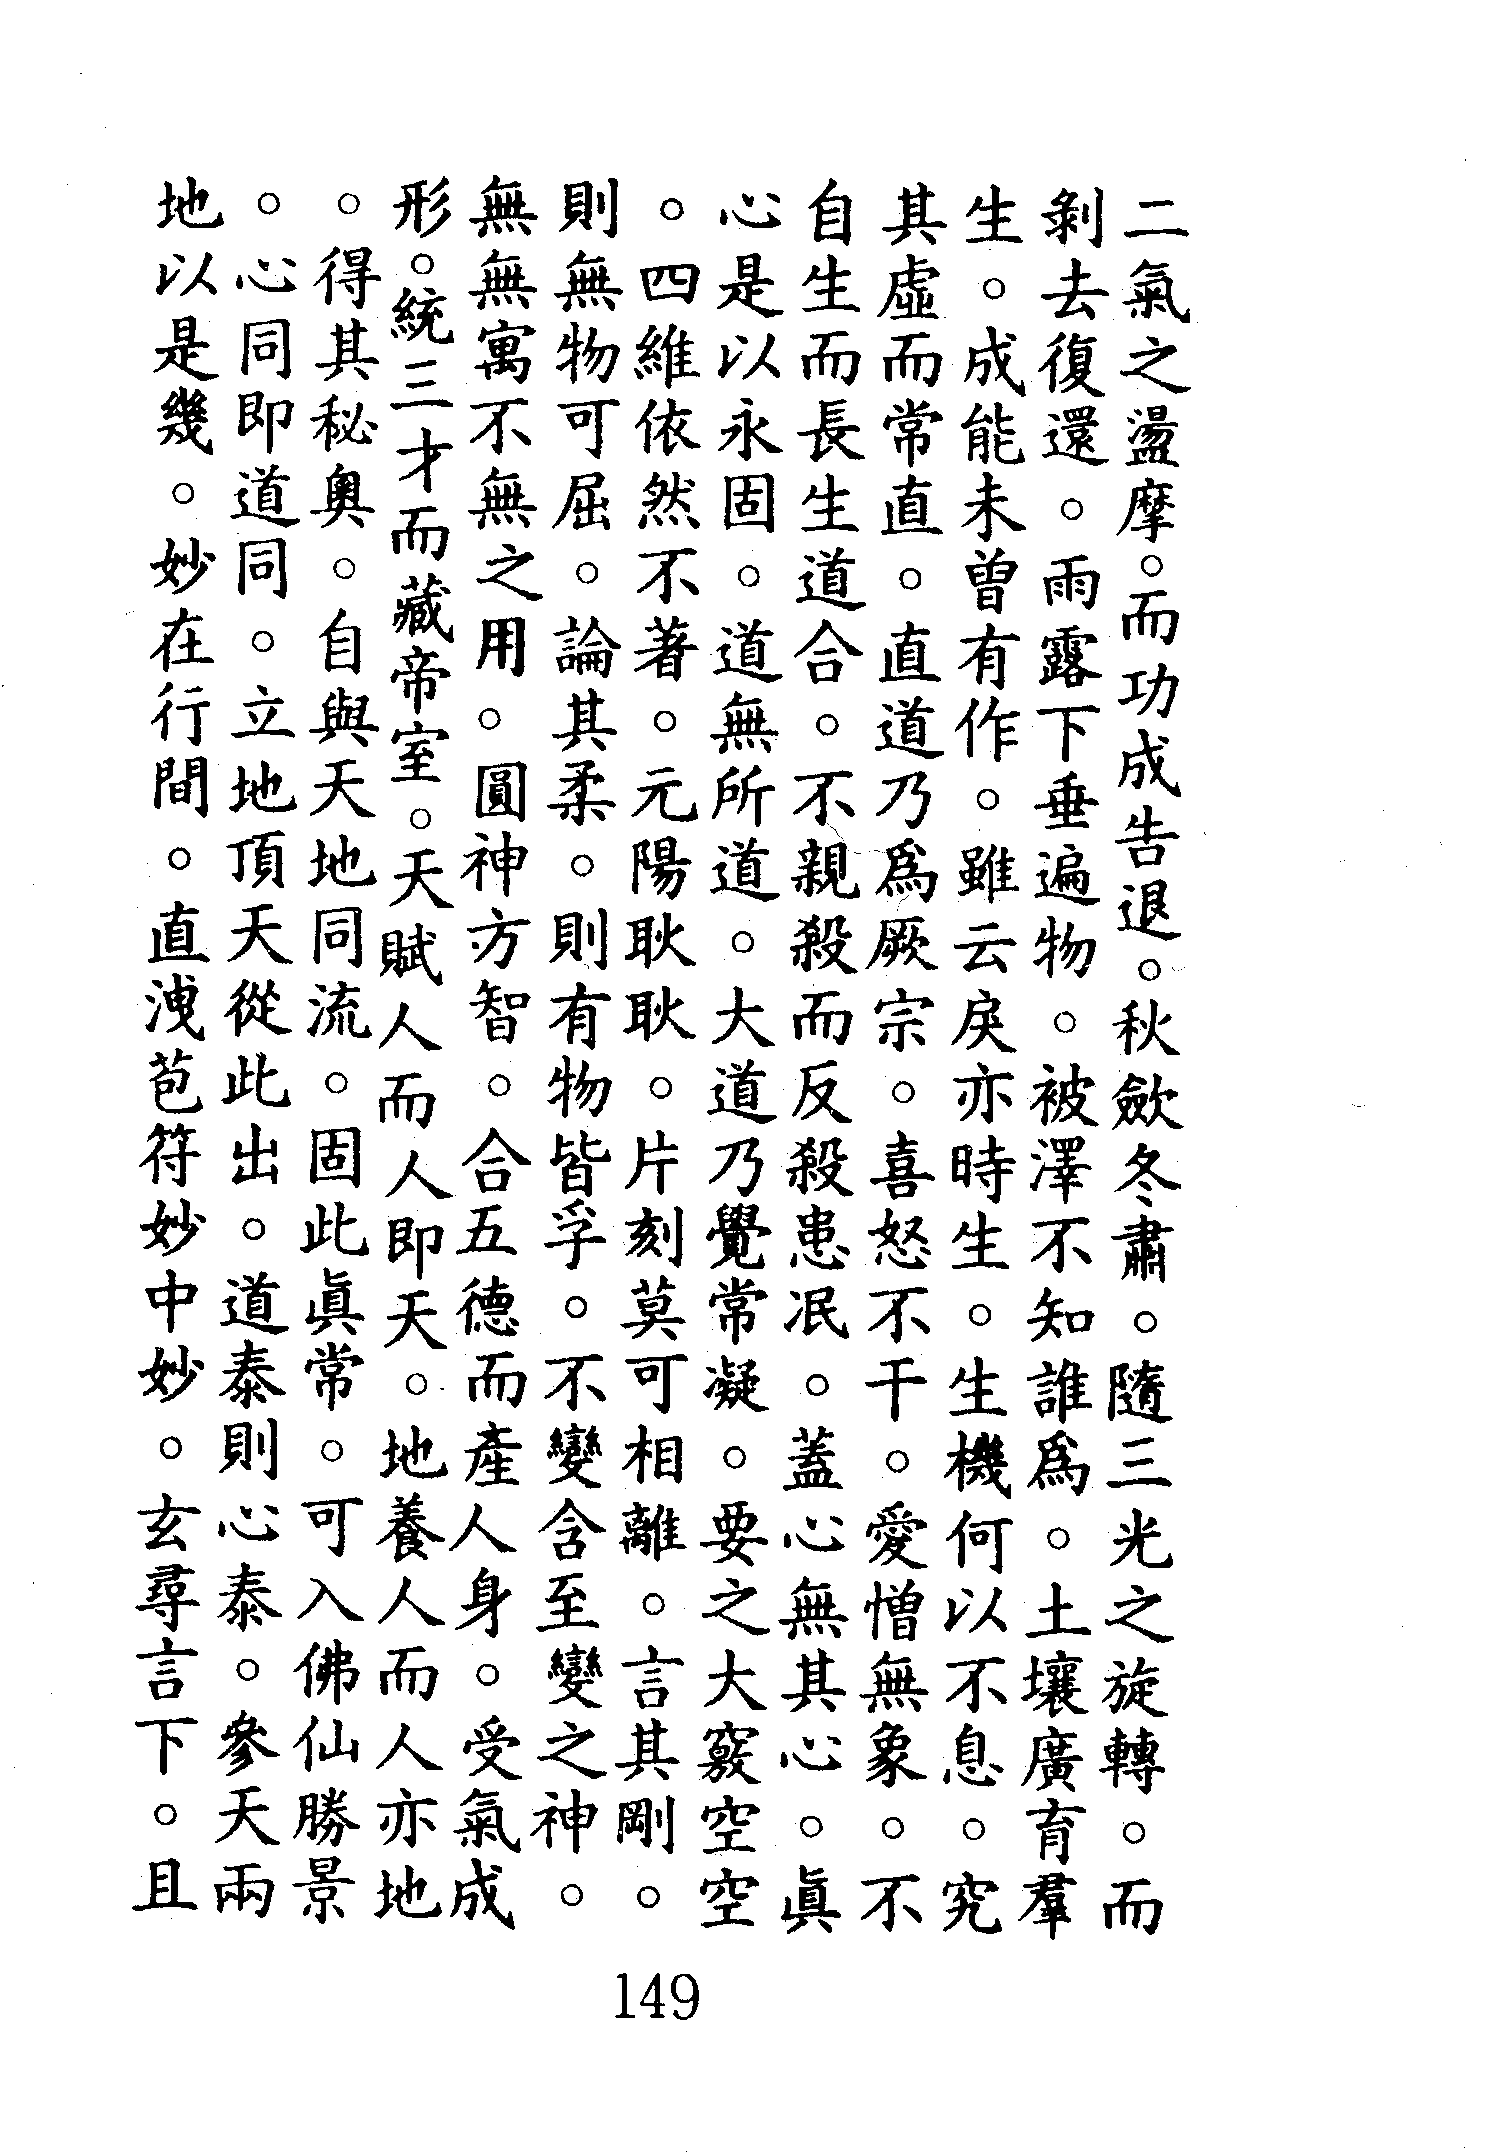 二氣之盪摩。而功成告退。秋歛冬肅。隨三光之旋轉。而
剝去復還。雨露下垂遍物。被澤不知誰爲。土壤廣育羣
生。成能未曾有作。雖云戾亦時生。生機何以不息。究
其虛而常直。直道乃爲厥宗。喜怒不干。愛憎無象。不
自生而長生道合。不親殺而反殺患泯。蓋心無其心。眞
心是以永固。道無所道。大道乃覺常凝。要之大竅空空
。四維依然不著。元陽耿耿。片刻莫可相離。言其剛。
則無物可屈。論其柔。則有物皆孚。不變含至變之神。
無無寓不無無之用。圓神方智。合五德而產人身。受氣成
形。統三才而藏帝室。天賦人而人即天。地養人而人亦地
。得其秘奧。自與天地同流。固此眞常。可入佛仙勝景
。心同即道同。立地頂天從此出。道泰則心泰。參天兩
地以是幾。妙在行間。直洩苞符妙中妙。玄尋言下。且
149